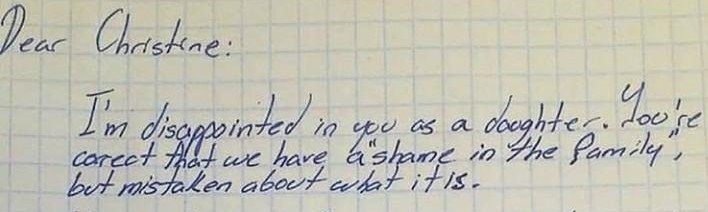 Dear Christine:
I'm disappointed in you as a daughter. You're
corect that we have a "shame in the family",
but mistaken about what it is.